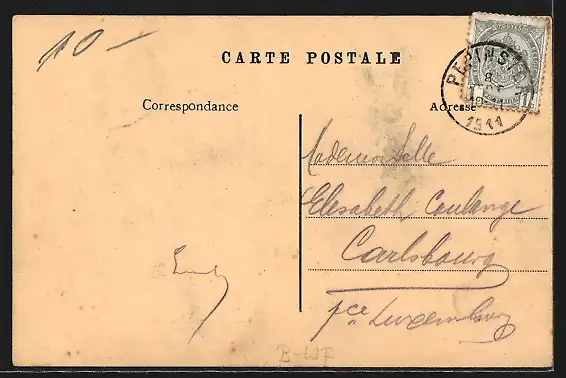 10 -
CARTE POSTALE
Correspondance
Adresse
1911
Mademoiselle
Elisabeth Coulange
Carlsbourg
pce Luxembourg
B-WF